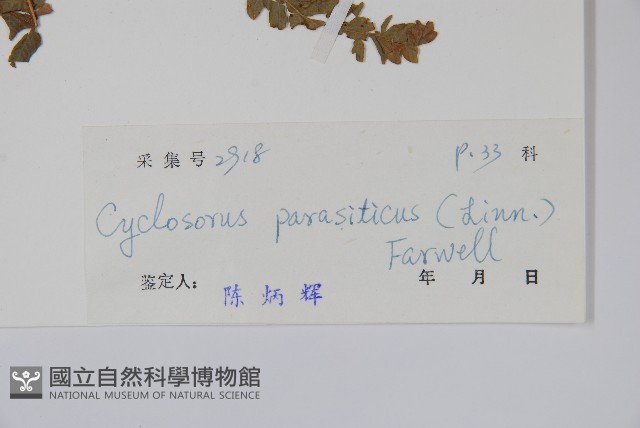 采集号 2918 P.33 科
Cyclosorus parasiticus (Linn.)
Farwell
年 月 日
鉴定人: 陈炳辉
國立自然科學博物館
NATIONAL MUSEUM OF NATURAL SCIENCE